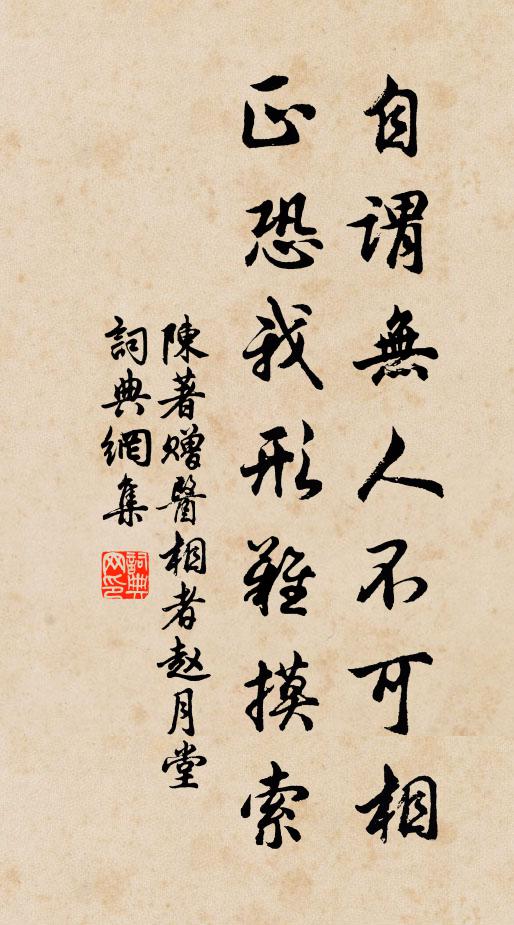 自謂無人不可相
正恐我形難摸索
陳著贈醫相者赵月堂
詞典網集
詞典网印